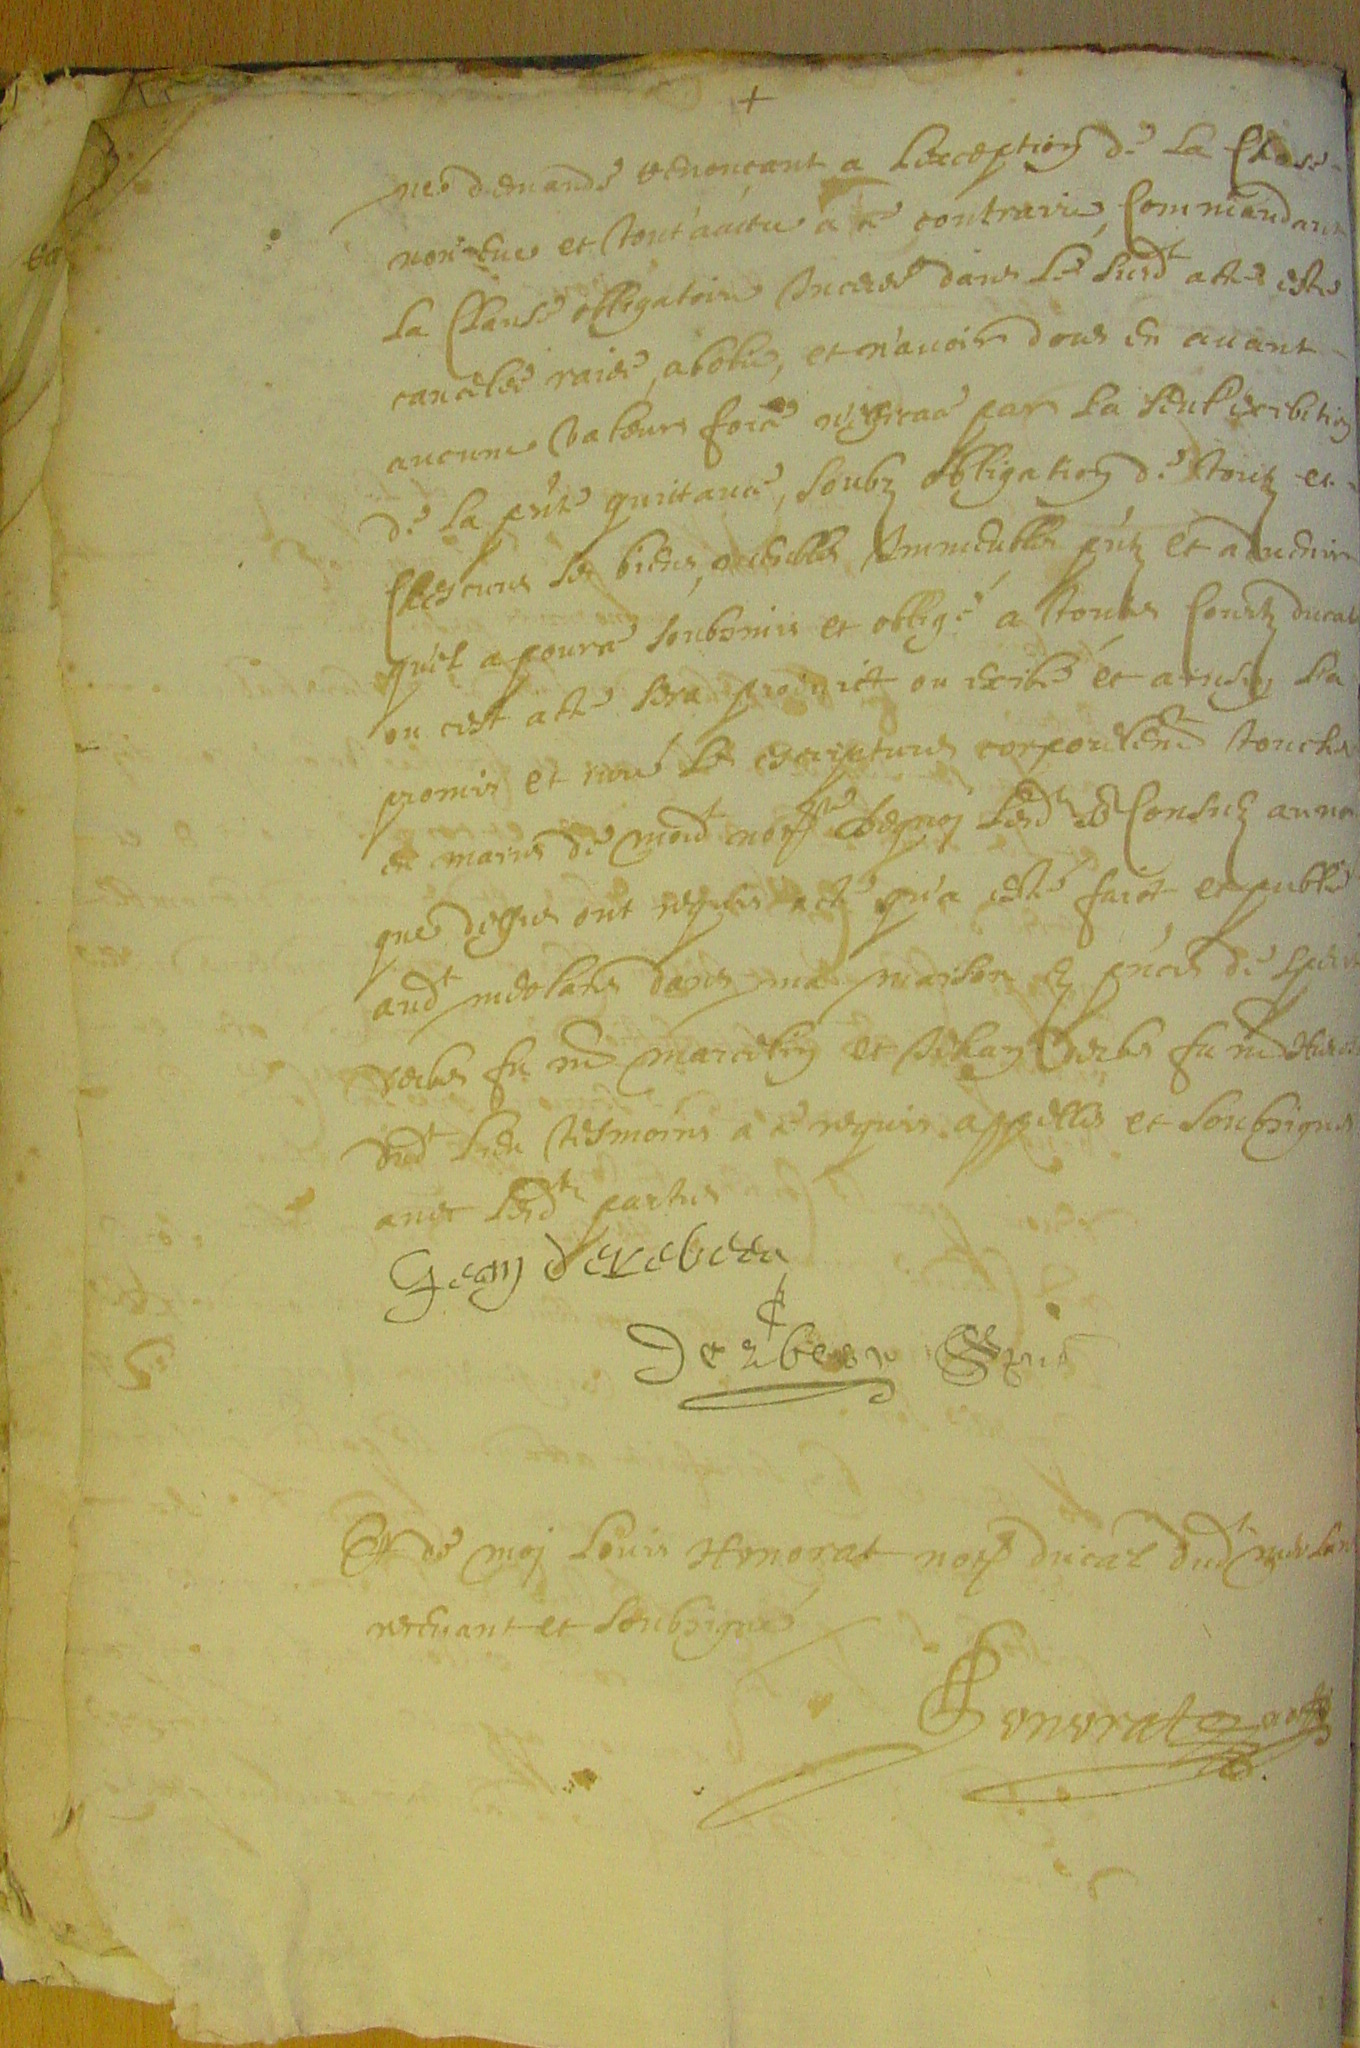 +
ne demande renonçant a lexception de la Chose
non eue et tout'autre a ce contraire, Commandant
la Clause obligatoire Inceree dans le susd^t acte estre
cancelée raiée, abolie, et n'avoir d'ors en avant
aucune valeur force n'efficace par la seul'exibition
de la pnte quittance, soubz obligation de toutz et
Chescuns ses biens, meubles Immeubles pntz et advenir
qu'el a pour ce soubzmis et obligé a toutes Courtz ducal
ou cest acte sera produict ou exibé et ainsin l'a
promis et juré les escriptures corporelem^t touchées
es mains de moid^t not^re dequoj lesd^ts Consulz au nom
que dessus ont requis acte qu'a esté faict et publié
aud^t meolans dans ma maison en pnces de
fu m^e marcelin et Jehan derbes fu m^e
dud^t lieu tesmoins a ce requis appellés et soubsignés
avec lesd^ts parties
Jean
Et de moj Louis Honorat not^e ducal dud^t meolan
recevant et soubsigné
Honorat not^e